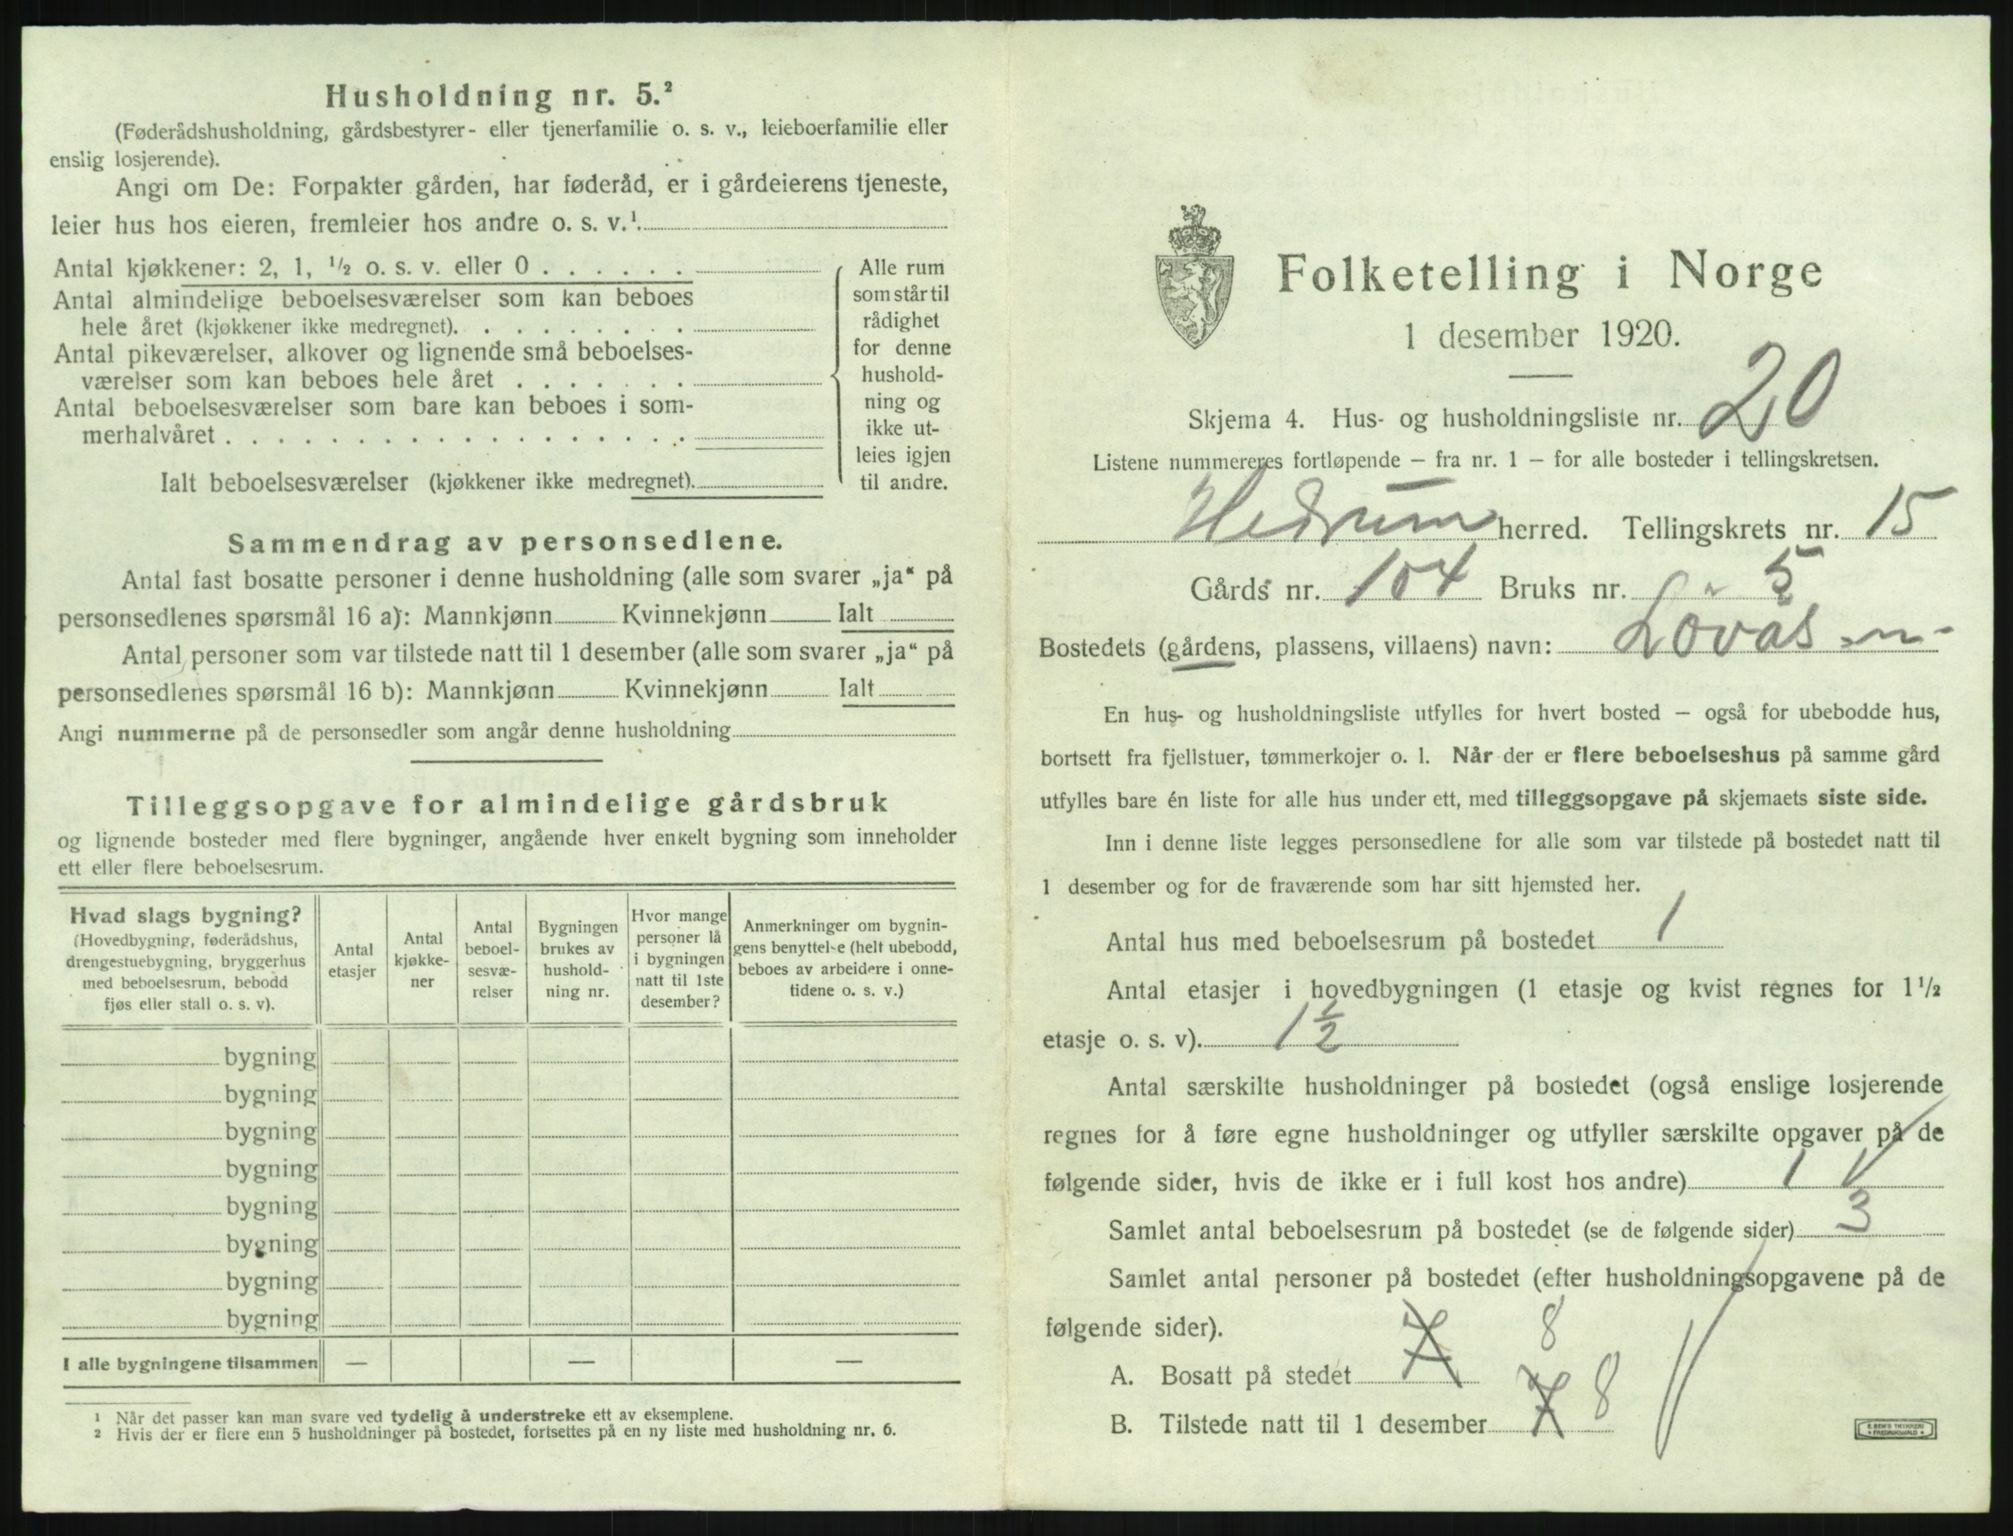 Husholdning nr. 5.²
(Føderådshusholdning, gårdsbestyrer- eller tjenerfamilie o. s. v., leieboerfamilie eller
enslig losjerende).
Angi om De: Forpakter gården, har føderåd, er i gårdeierens tjeneste,
leier hus hos eieren, fremleier hos andre o. s. v.¹
Antal kjøkkener: 2, 1, ½ o. s. v. eller 0
Antal almindelige beboelsesværelser som kan beboes
hele året (kjøkkener ikke medregnet).
Antal pikeværelser, alkover og lignende små beboelses-
værelser som kan beboes hele året
Antal beboelsesværelser som bare kan beboes i som-
merhalvåret
Ialt beboelsesværelser (kjøkkener ikke medregnet).
Alle rum
som står til
rådighet
for denne
hushold-
ning og
ikke ut-
leies igjen
til andre.
Sammendrag av personsedlene.
Antal fast bosatte personer i denne husholdning (alle som svarer „ja“ på
personsedlenes spørsmål 16 a): Mannkjønn Kvinnekjønn Ialt
Antal personer som var tilstede natt til 1 desember (alle som svarer „ja“ på
personsedlenes spørsmål 16 b): Mannkjønn Kvinnekjønn Ialt
Angi nummerne på de personsedler som angår denne husholdning
Tilleggsopgave for almindelige gårdsbruk
og lignende bosteder med flere bygninger, angående hver enkelt bygning som inneholder
ett eller flere beboelsesrum.
Hvad slags bygning?
(Hovedbygning, føderådshus,
drengestuebygning, bryggerhus
med beboelsesrum, bebodd
fjøs eller stall o. s. v).
Antal
etasjer
Antal
kjøkke-
ner
Antal
beboel-
sesvæ-
relser
Bygningen
brukes av
hushold-
ning nr.
Hvor mange
personer lå
i bygningen
natt til 1ste
desember?
Anmerkninger om bygnin-
gens benyttelse (helt ubebodd,
beboes av arbeidere i onne-
tidene o. s. v.)
bygning
bygning
bygning
bygning
bygning
bygning
bygning
bygning
I alle bygningene tilsammen — — —
¹ Når det passer kan man svare ved tydelig å understreke ett av eksemplene.
² Hvis der er flere enn 5 husholdninger på bostedet, fortsettes på en ny liste med husholdning nr. 6.
Folketelling i Norge
1 desember 1920.
Skjema 4. Hus- og husholdningsliste nr. 20
Listene nummereres fortløpende – fra nr. 1 – for alle bosteder i tellingskretsen.
Hedrum herred. Tellingskrets nr. 15
Gårds nr. 104 Bruks nr. 5
Bostedets (gårdens, plassens, villaens) navn: Lövås
En hus- og husholdningsliste utfylles for hvert bosted – også for ubebodde hus,
bortsett fra fjellstuer, tømmerkojer o. l. Når der er flere beboelseshus på samme gård
utfylles bare én liste for alle hus under ett, med tilleggsopgave på skjemaets siste side.
Inn i denne liste legges personsedlene for alle som var tilstede på bostedet natt til
1 desember og for de fraværende som har sitt hjemsted her.
Antal hus med beboelsesrum på bostedet 1
Antal etasjer i hovedbygningen (1 etasje og kvist regnes for 1½
etasje o. s. v). 1½
Antal særskilte husholdninger på bostedet (også enslige losjerende
regnes for å føre egne husholdninger og utfyller særskilte opgaver på de
følgende sider, hvis de ikke er i full kost hos andre) 1
Samlet antal beboelsesrum på bostedet (se de følgende sider) 3
Samlet antal personer på bostedet (efter husholdningsopgavene på de
følgende sider).
A. Bosatt på stedet 7 8
B. Tilstede natt til 1 desember 7 8